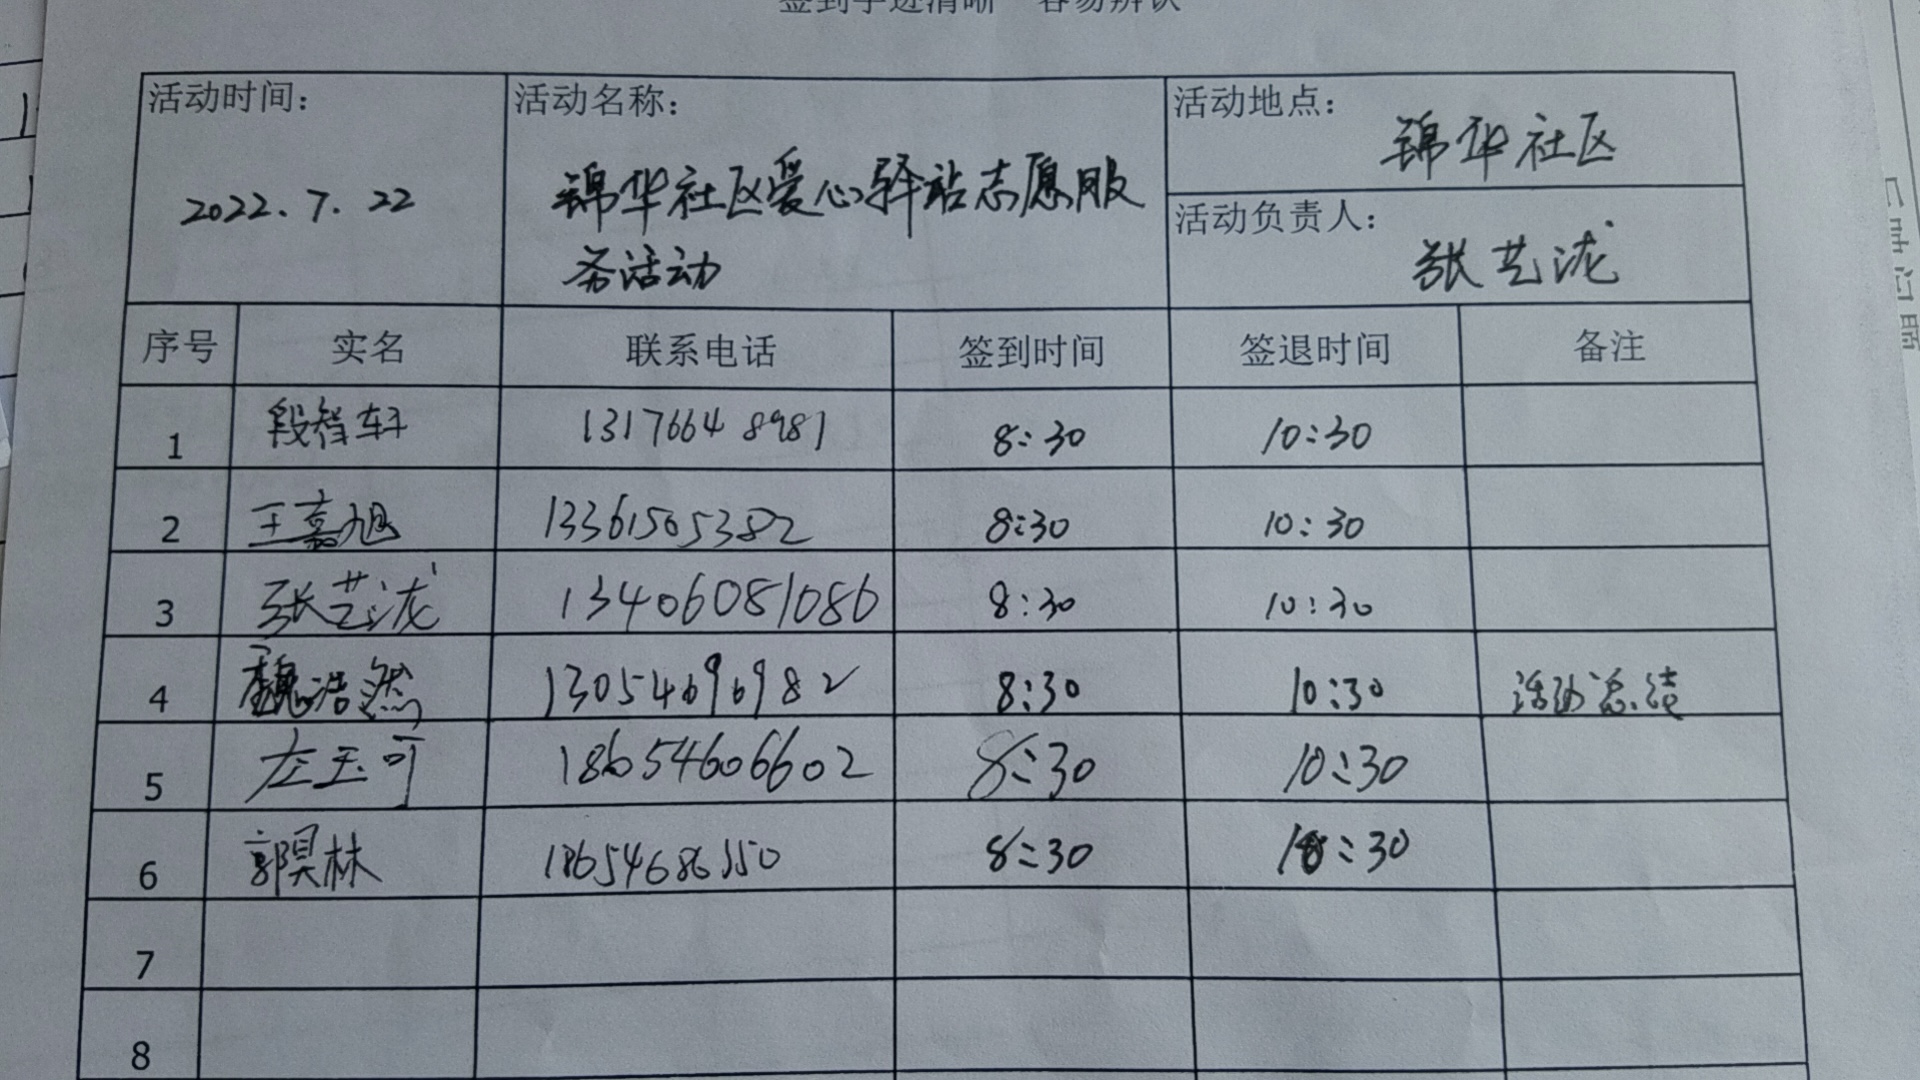 签到字迹清晰 容易辨认
活动时间：
2022.7.22
活动名称：
锦华社区爱心驿站志愿服
务活动
活动地点：
锦华社区
活动负责人：
张艺泷
序号 实名 联系电话 签到时间 签退时间 备注
1 段智轩 13176648981 8:30 10:30
2 王嘉旭 13361505382 8:30 10:30
3 张艺泷 13406081086 8:30 10:30
4 魏浩然 13054696982 8:30 10:30 活动总结
5 左玉可 18654606602 8:30 10:30
6 郭昊林 18654686550 8:30 10:30
7
8